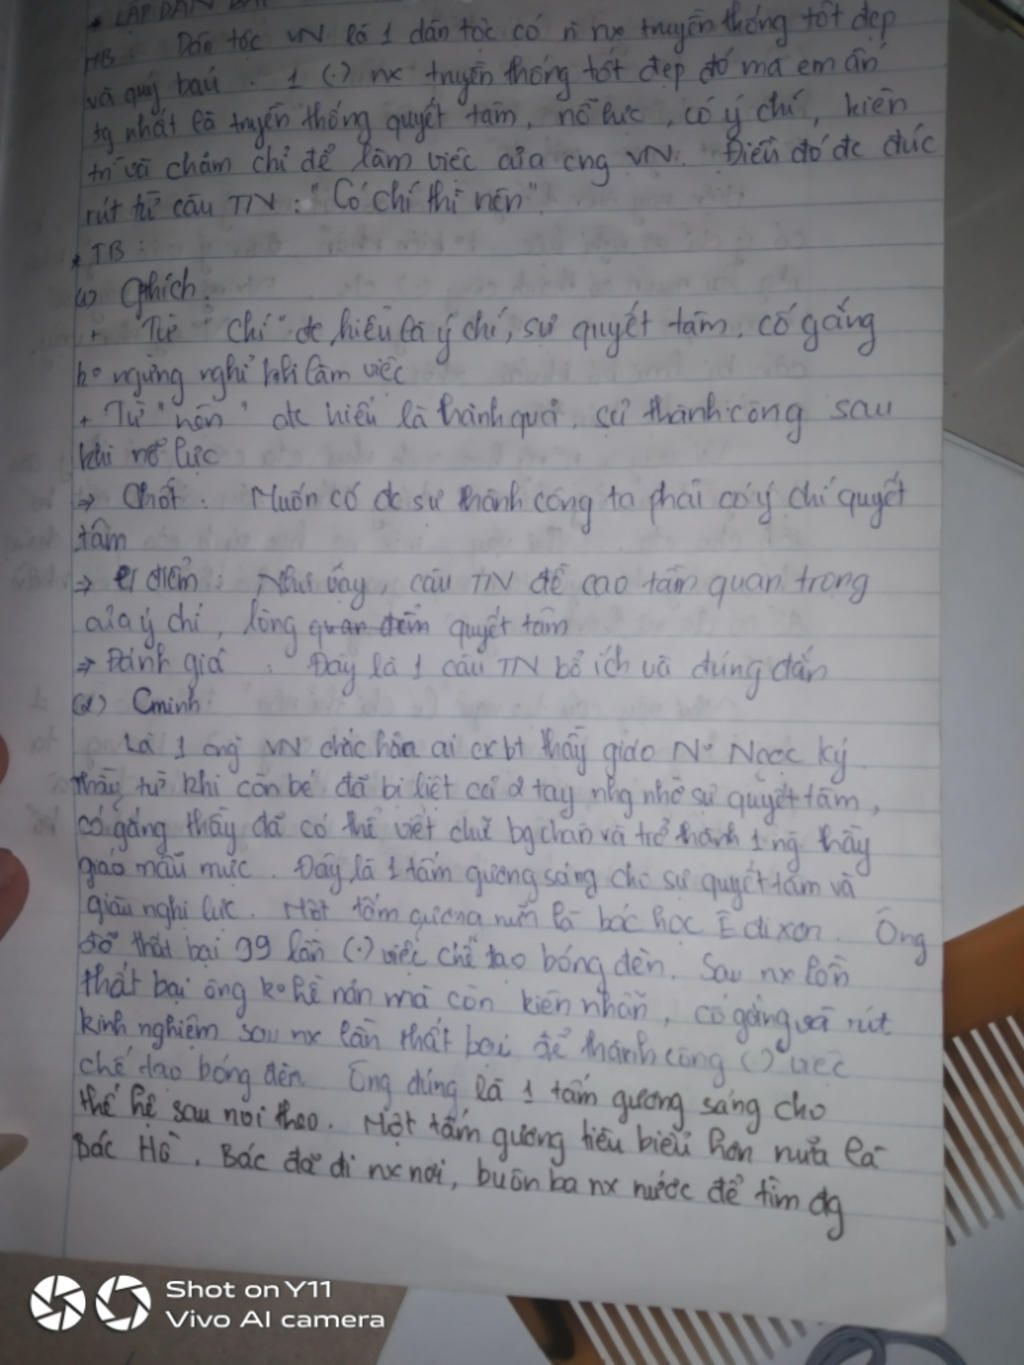 * LẬP DÀN BÀI
MB: Dân tộc VN là 1 dân tộc có nx truyền thống tốt đẹp
và quý báu. 1 (.) nx truyền thống tốt đẹp đó mà em ấn
tg nhất là truyền thống quyết tâm, nỗ lực, có ý chí, kiên
trì và chăm chỉ để làm việc của cng VN. Điều đó đc đúc
rút từ câu TN: "Có chí thì nên".
* TB:
(1) Gthích.
+ Từ "Chí" đc hiểu là ý chí, sự quyết tâm, cố gắng
ko ngừng nghỉ khi làm việc
+ Từ "nên" đc hiểu là thành quả, sự thành công sau
khi nỗ lực
→ Chốt: Muốn có đc sự thành công ta phải có ý chí quyết
tâm
→ điểm: Như vậy, câu TN đề cao tầm quan trọng
của ý chí, lòng quan điểm quyết tâm
→ Đánh giá: Đây là 1 câu TN bổ ích và đúng đắn
(2) Cminh
Là 1 ng VN chắc hẳn ai cx bt thầy giáo No Ngọc Ký.
Thầy từ khi còn bé đã bị liệt cả 2 tay nhg nhờ sự quyết tâm,
cố gắng thầy đã có thể viết chữ bg chân và trở thành 1 ng thầy
giáo mẫu mực. Đây là 1 tấm gương sáng cho sự quyết tâm và
giàu nghị lực. Một tấm gương nữa là bác học Êđixơn. Ông
đã thất bại 99 lần (.) việc chế tạo bóng đèn. Sau nx lần
thất bại ông ko hề nản mà còn kiên nhẫn, cố gắng và rút
kinh nghiệm sau nx lần thất bại để thành công (.) việc
chế tạo bóng đèn. Ông đúng là 1 tấm gương sáng cho
thế hệ sau noi theo. Một tấm gương tiêu biểu hơn nữa là
Bác Hồ. Bác đã đi nx nơi, buôn ba nx nước để tìm đg